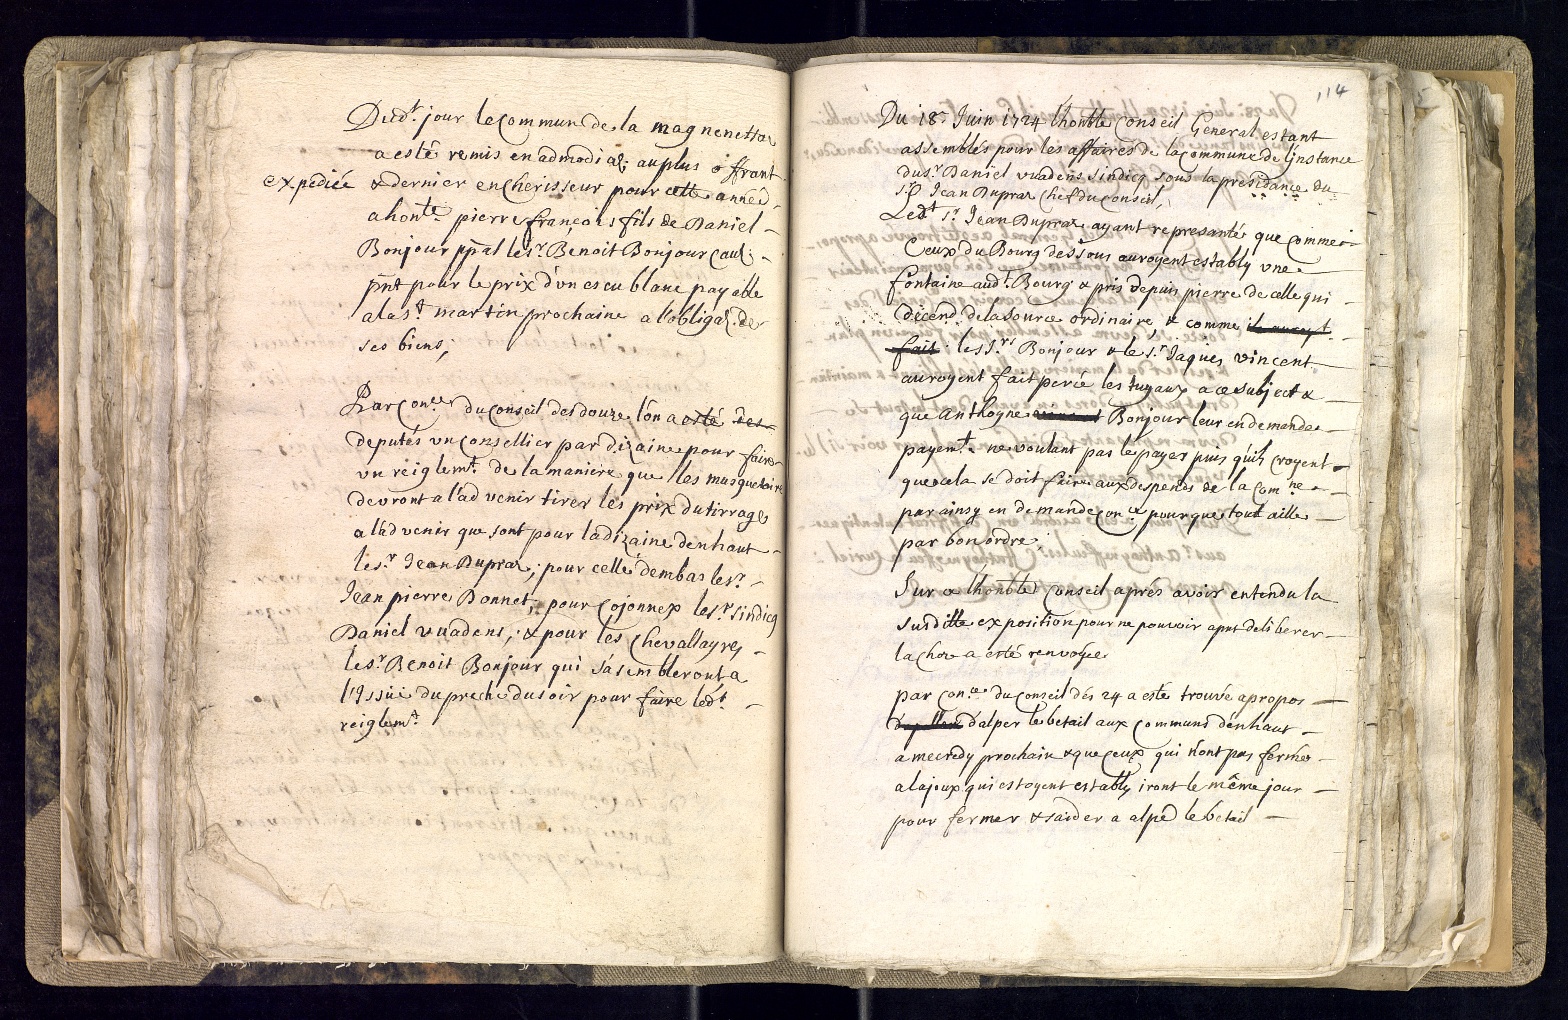 Dud.t jour le Commun de la magnenettaz
a esté remis en admodiaõn au plus offrant
expediée & dernier encherisseur pour cette année
a hon.te pierre françois fils de Daniel -
Bonjour ppal le s.r Benoit Bonjour cauõn -
pnt pour le prix d'un escu blanc payable
a la s.t martin prochaine a l'obligaõn de
ses biens;
Par Con.ce du Conseil des douze l'on a esté des
deputés un Consellier par dizaine pour faire
un réiglem.t de la maniere que les musquetaire
devront a l'advenir tirer les prix du tirrage
a l'advenir que sont pour la dizaine denhaut -
le s.r Jean Dupraz; pour celle dembas le s.r -
Jean pierre Bonnet; pour Cojonnex le s.r sindicq
Daniel vuadens; & pour les Chevallayres -
le s.r Benoit Bonjour qui s'asembleront a
l'issüe du preche du soir pour faire led.t -
reiglem.t
114
Du 18.e Juin 1724 l'honble Conseil General estant
assemblés pour les affaires de la Commune de l'instance
du s.r Daniel vuadens sindicq sous la presidance du
s.r Jean Dupraz Chef du Conseil,
Led.t s.r Jean Dupraz ayant representé que comme
Ceux du Bourg dessous auroyent estably une
fontaine aud.t Bourg & pris depuis pierre de celle qui -
décend de la source ordinaire, & comme il auroyt
fait les s.rs Bonjour & le s.r Jaques vincent
auroyent fait percé les tuyaux a ce subject &
que Anthoyne Bonjour leur en demande
payem.t ne voulant pas le payer puis quils croyent
que cela se doit faire aux despends de la Com.ne
par ainsy en demande con.ce pour que tout aille -
par bon ordre;
Sur ce l'honble Conseil aprés avoir entendu la
susditte exposition pour ne pouvoir apnt deliberer -
la chose a esté renvoyée
par con.ce du Conseil des 24 a esté trouvé apropos -
d'alper le betail aux Communs denhaut -
a mecredy prochain & que ceux qui n'ont pas fermé -
a la joux qui estoyent estably iront le même jour -
pour fermer & s'aider a alper le betail -